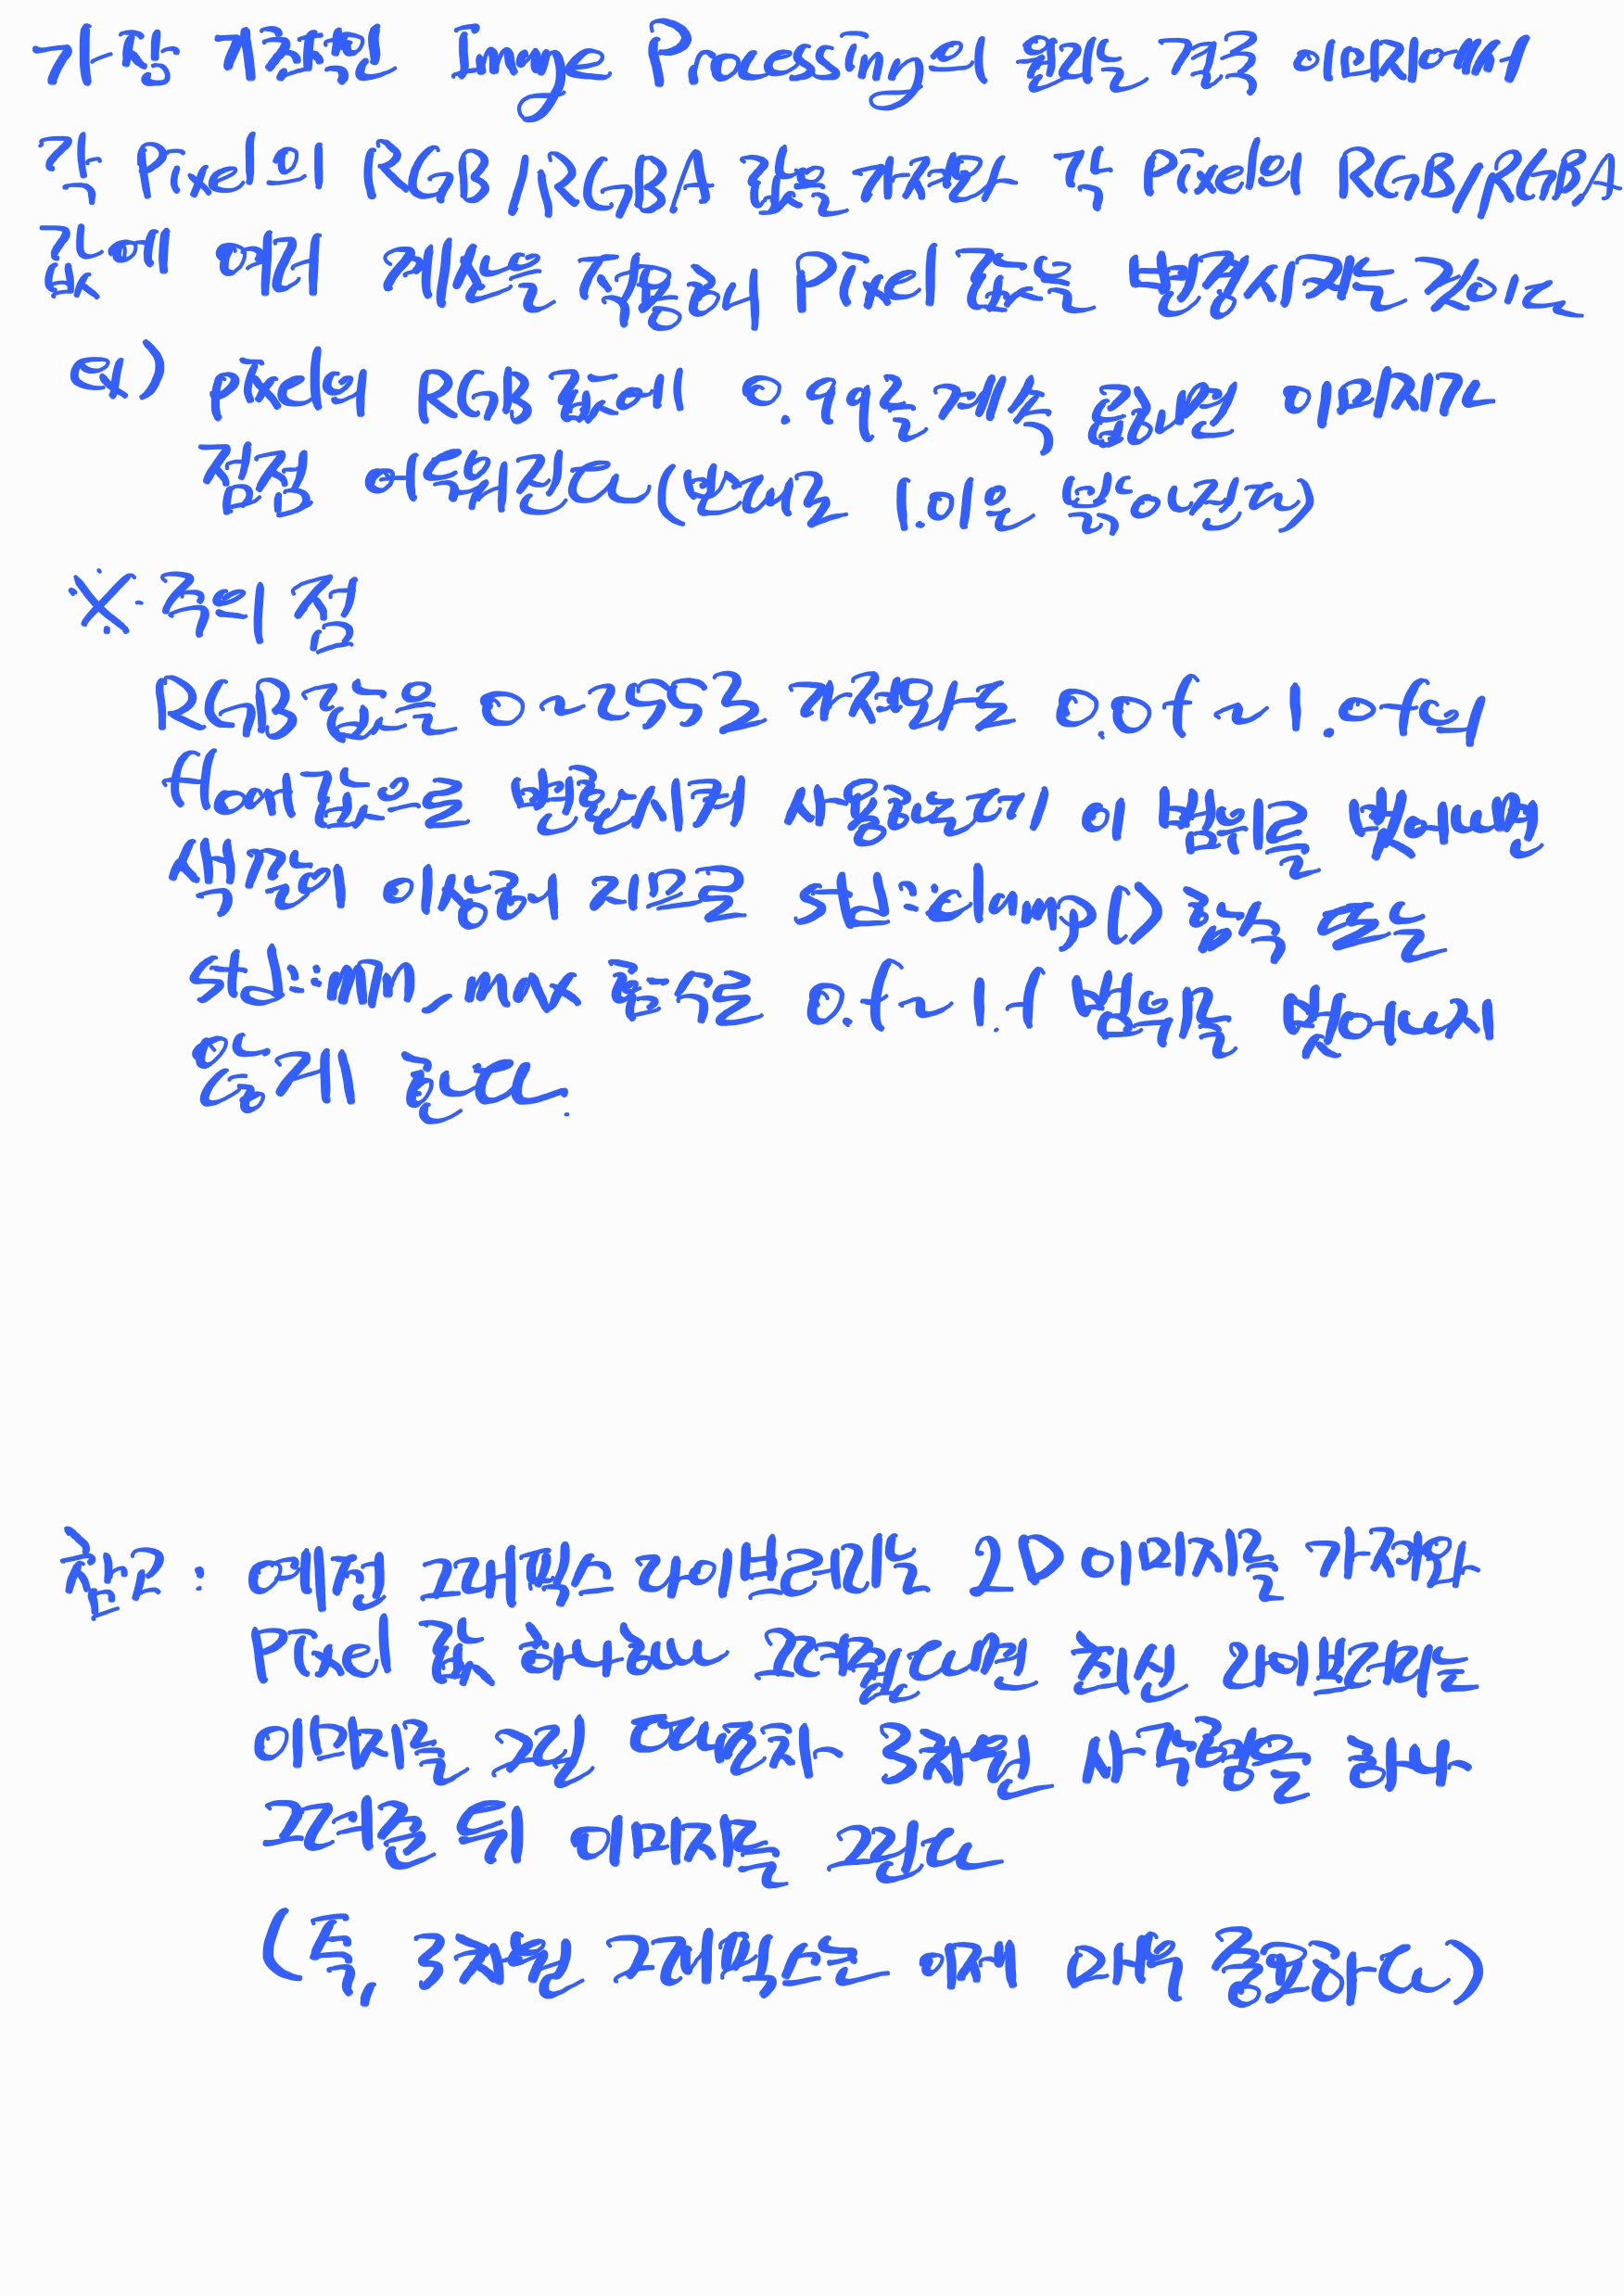 가장 기초적인 Image Processing의 원리는 결국 이미지에서
각 Pixel의 RGB/RGBA 값을 가져와 각 Pixel의 RGB/RGBA
값에 여러 계산을 적용해 Pixel 값을 변형시키는 것이다
예) Pixel의 RGB값에 0.99를 계속 곱하면 이미지가
점점 어두워진다(반대로 1.01은 밝아진다)
※ 주의 점
RGB값은 0~255로 가져와도 0.0f ~ 1.0f의
float값으로 변환시켜 사용하는데 이 범위를 벗어나면
색깔이 이상해 지므로 std::clamp() 함수 또는
std::min, max 함수로 0.f~1.f 범위를 벗어나지
않게 한다.
참고: 예전 그래픽스 라이브러리는 2D이미지를 가져와
Pixel 값 하나하나 그려줬다면 최신 라이브러리는
이미지를 그릴 때마다 3차원 사각형을 하나
그려준 뒤 이미지를 그린다
(즉, 3차원 그래픽스는 이제 매우 중요하다)